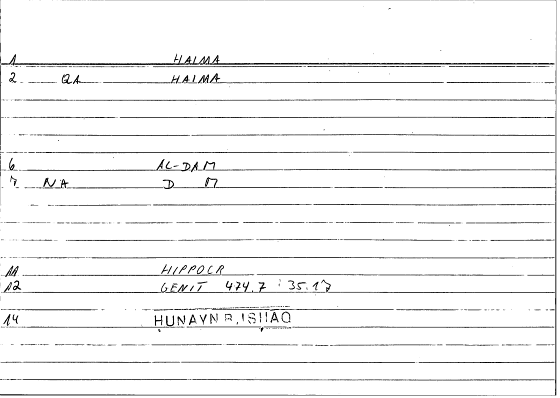 1 HAIMA
2 QA HAIMA
6 AL-DAM
7 NA D M
11 HIPPOCR
12 GENIT 474.7 : 35.17
14 HUNAYN B. ISHAQ